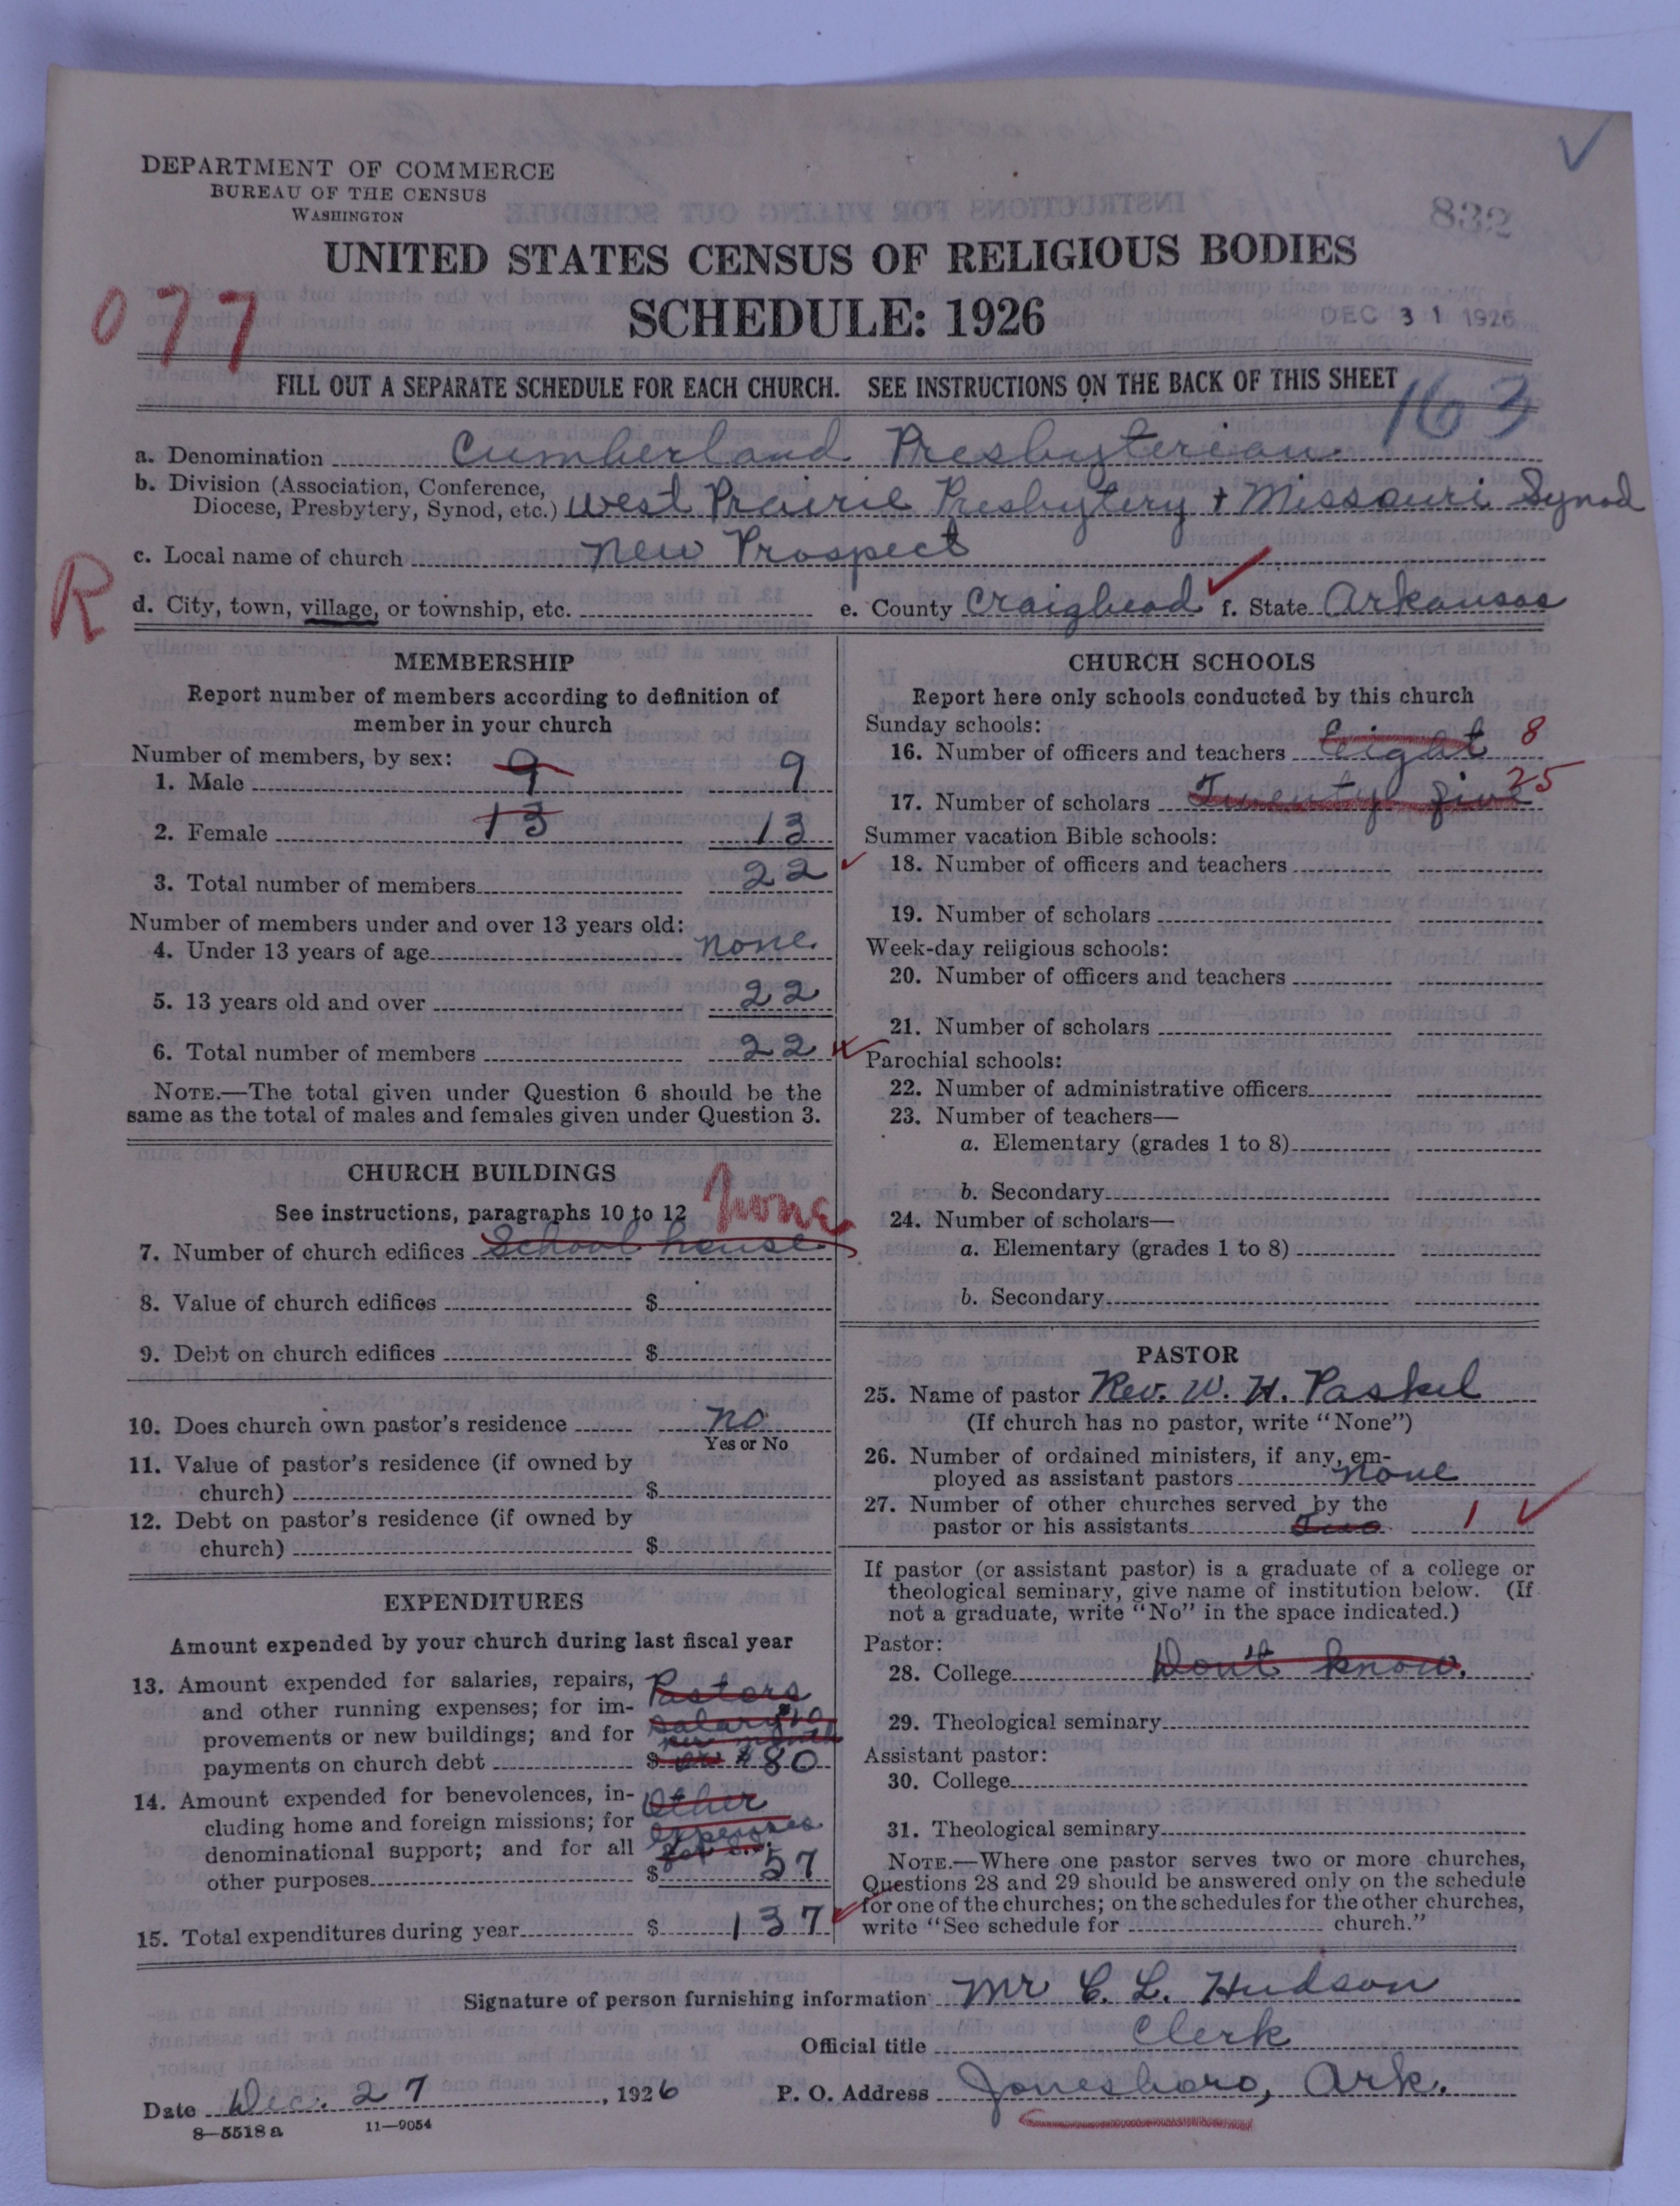 DEPARTMENT OF COMMERCE
BUREAU OF THE CENSUS
WASHINGTON
832
UNITED STATES CENSUS OF RELIGIOUS BODIES
SCHEDULE: 1926
077
DEC 31 1926
FILL OUT A SEPARATE SCHEDULE FOR EACH CHURCH. SEE INSTRUCTIONS ON THE BACK OF THIS SHEET
163
a. Denomination Cumberland Presbyterian
b. Division (Association, Conference,
Diocese, Presbytery, Synod, etc.) West Prairie Presbytery + Missouri Synod
c. Local name of church New Prospect
R
d. City, town, village, or township, etc. e. County Craighead f. State Arkansas
MEMBERSHIP
Report number of members according to definition of
member in your church
Number of members, by sex:
1. Male 9 9
2. Female 13 13
3. Total number of members 22
Number of members under and over 13 years old:
4. Under 13 years of age none
5. 13 years old and over 22
6. Total number of members 22
NOTE.—The total given under Question 6 should be the
same as the total of males and females given under Question 3.
CHURCH BUILDINGS
See instructions, paragraphs 10 to 12 none
7. Number of church edifices School house
8. Value of church edifices $
9. Debt on church edifices $
10. Does church own pastor's residence no
Yes or No
11. Value of pastor's residence (if owned by
church) $
12. Debt on pastor's residence (if owned by
church) $
EXPENDITURES
Amount expended by your church during last fiscal year
13. Amount expended for salaries, repairs, Pastors
and other running expenses; for im- salary
provements or new buildings; and for per month
payments on church debt $ $80
14. Amount expended for benevolences, in- Other
cluding home and foreign missions; for expenses
denominational support; and for all
other purposes $ 57
15. Total expenditures during year $ 137
CHURCH SCHOOLS
Report here only schools conducted by this church
Sunday schools:
16. Number of officers and teachers Eight 8
17. Number of scholars Twenty five 25
Summer vacation Bible schools:
18. Number of officers and teachers
19. Number of scholars
Week-day religious schools:
20. Number of officers and teachers
21. Number of scholars
Parochial schools:
22. Number of administrative officers
23. Number of teachers—
a. Elementary (grades 1 to 8)
b. Secondary
24. Number of scholars—
a. Elementary (grades 1 to 8)
b. Secondary
PASTOR
25. Name of pastor Rev. W. H. Paskel
(If church has no pastor, write "None")
26. Number of ordained ministers, if any, em-
ployed as assistant pastors none
27. Number of other churches served by the
pastor or his assistants Two 1
If pastor (or assistant pastor) is a graduate of a college or
theological seminary, give name of institution below. (If
not a graduate, write "No" in the space indicated.)
Pastor:
28. College Don't know.
29. Theological seminary
Assistant pastor:
30. College
31. Theological seminary
NOTE.—Where one pastor serves two or more churches,
Questions 28 and 29 should be answered only on the schedule
for one of the churches; on the schedules for the other churches,
write "See schedule for church."
Signature of person furnishing information Mr C. L. Hudson
Official title Clerk
Date Dec. 27, 1926 P. O. Address Jonesboro, Ark.
8—5518a 11—9054